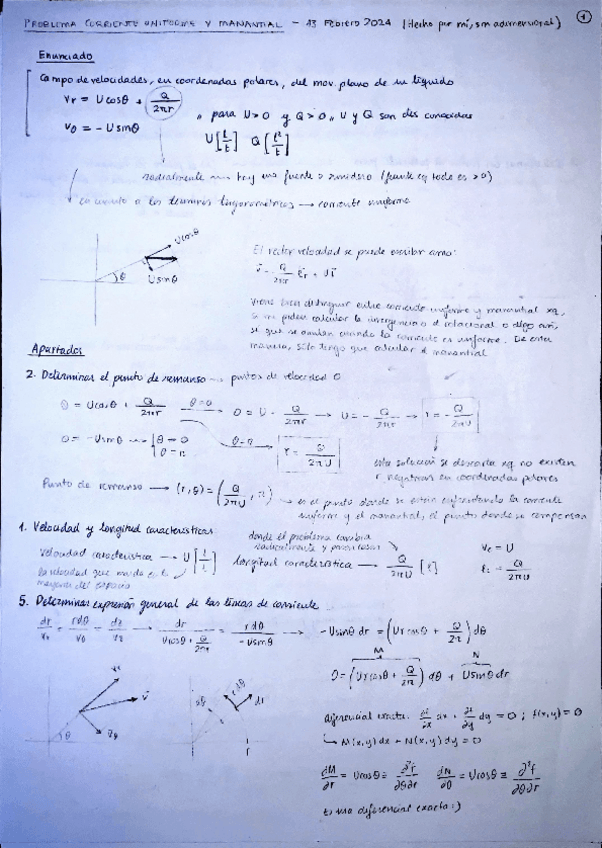 PROBLEMA CORRIENTE UNIFORME Y MANANTIAL - 13 Febrero 2024 (Hecho por mí, sin adimensional) 1
Enunciado
Campo de velocidades, en coordenadas polares, del mov. plano de un líquido
Vr = U cosθ + Q/2πr
Vθ = - U senθ
para U>0 y Q>0, U y Q son dos conocidas
U[l/t] Q[l²/t]
radialmente hay una fuente o sumidero (fuente xq todo es >0)
en cuanto a los términos trigonométricos → corriente uniforme
Ucosθ
θ
Usinθ
El vector velocidad se puede escribir como:
v̄ = Q/2πr ēr + U ī
Viene bien distinguir entre corriente uniforme y manantial xq,
si me piden calcular la divergencia o el rotacional o algo así,
sé que se anulan cuando la corriente es uniforme. De esta
manera, sólo tengo que calcular el manantial
Apartados
2. Determinar el punto de remanso → puntos de velocidad 0
0 = Ucosθ + Q/2πr θ=0 → 0 = U - Q/2πr → U = - Q/2πr → r = - Q/2πU
0 = -Usinθ → {θ = 0 θ = π θ=π → r = Q/2πU
esta solución se descarta xq no existen
r negativas en coordenadas polares
Punto de remanso → (r, θ) = (Q/2πU, π) → es el punto donde se están enfrentando la corriente
uniforme y el manantial, el punto donde se compensan
1. Velocidad y longitud características
velocidad característica → U [l/t]
la velocidad que manda en la
mayoría del espacio
donde el problema cambia
radialmente
longitud característica → Q/2πU [l]
Vc = U
lc = Q/2πU
5. Determinar expresión general de las líneas de corriente
dr/Vr = rdθ/Vθ = dz/Vz → dr/(Ucosθ + Q/2πr) = rdθ/(-Usinθ) → -Usinθ dr = (Urcosθ + Q/2π) dθ
M N
0 = (Urcosθ + Q/2π) dθ + Usinθ dr
vr
v̄
θ
dθ
rdθ
dr
r
diferencial exacta: ∂f/∂x dx + ∂f/∂y dy = 0 ; f(x,y) = 0
↳ M(x,y) dx + N(x,y) dy = 0
∂M/∂r = Ucosθ ≡ ∂²f/∂θ∂r ∂N/∂θ = Ucosθ ≡ ∂²f/∂θ∂r
Es una diferencial exacta :)